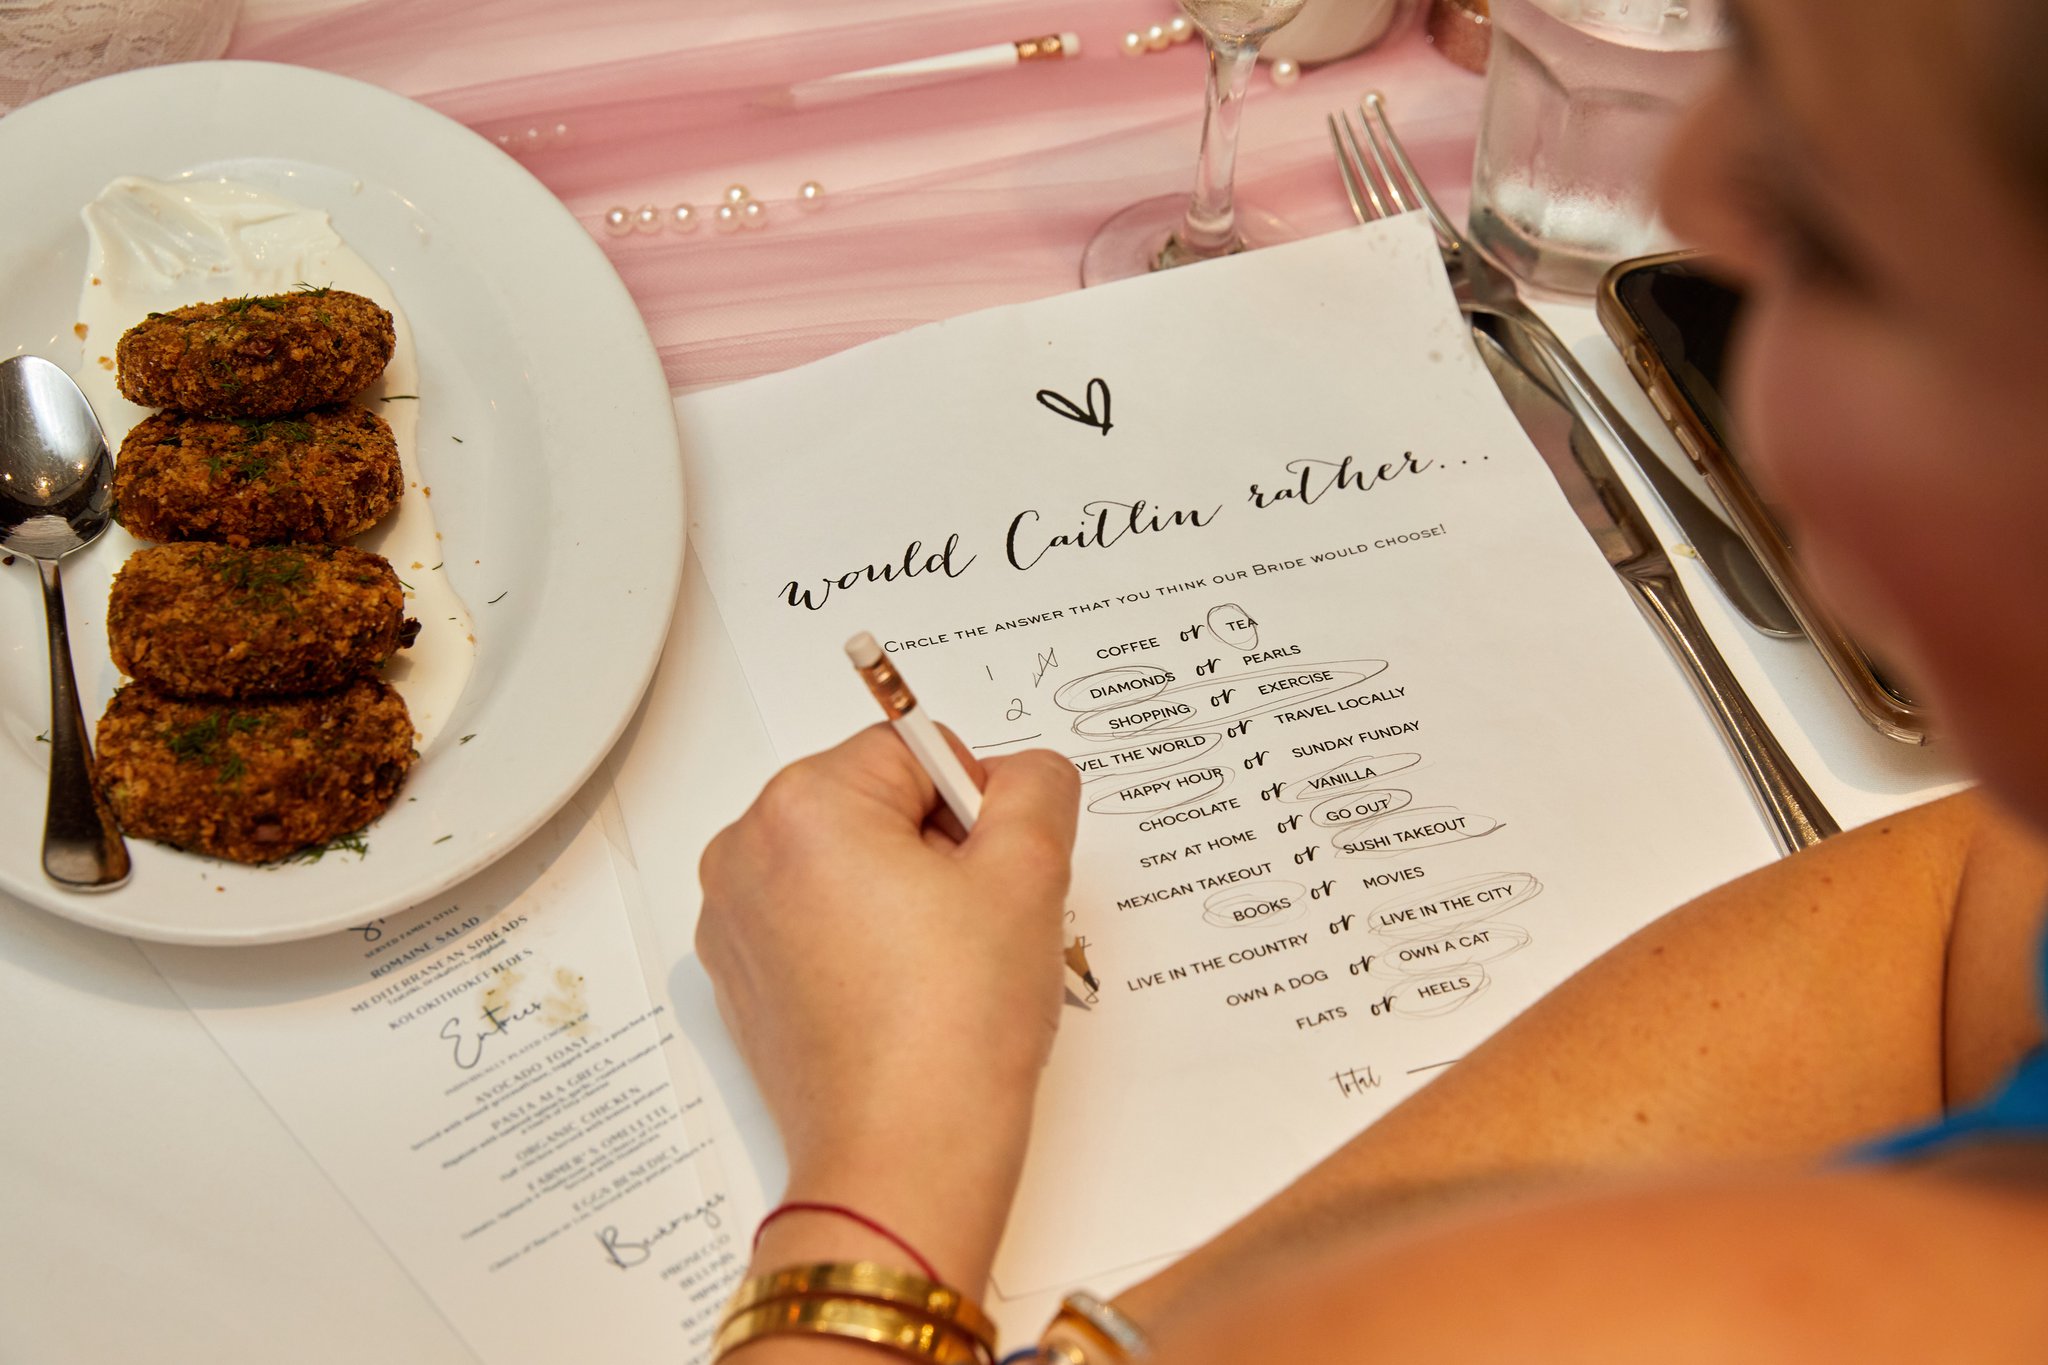 would Caitlin rather...
CIRCLE THE ANSWER THAT YOU THINK OUR BRIDE WOULD CHOOSE!
1 COFFEE or TEA
2 DIAMONDS or PEARLS
SHOPPING or EXERCISE
VEL THE WORLD or TRAVEL LOCALLY
HAPPY HOUR or SUNDAY FUNDAY
CHOCOLATE or VANILLA
STAY AT HOME or GO OUT
MEXICAN TAKEOUT or SUSHI TAKEOUT
BOOKS or MOVIES
LIVE IN THE COUNTRY or LIVE IN THE CITY
OWN A DOG or OWN A CAT
FLATS or HEELS
total
SERVED FAMILY STYLE
ROMAINE SALAD
MEDITERRANEAN SPREADS
KOLOKITHOKEFTEDES
Entrees
AVOCADO TOAST
PASTA ALA GRECA
ORGANIC CHICKEN
FARMER'S OMELETTE
EGGS BENEDICT
Beverages
PROSECCO
BELLINI